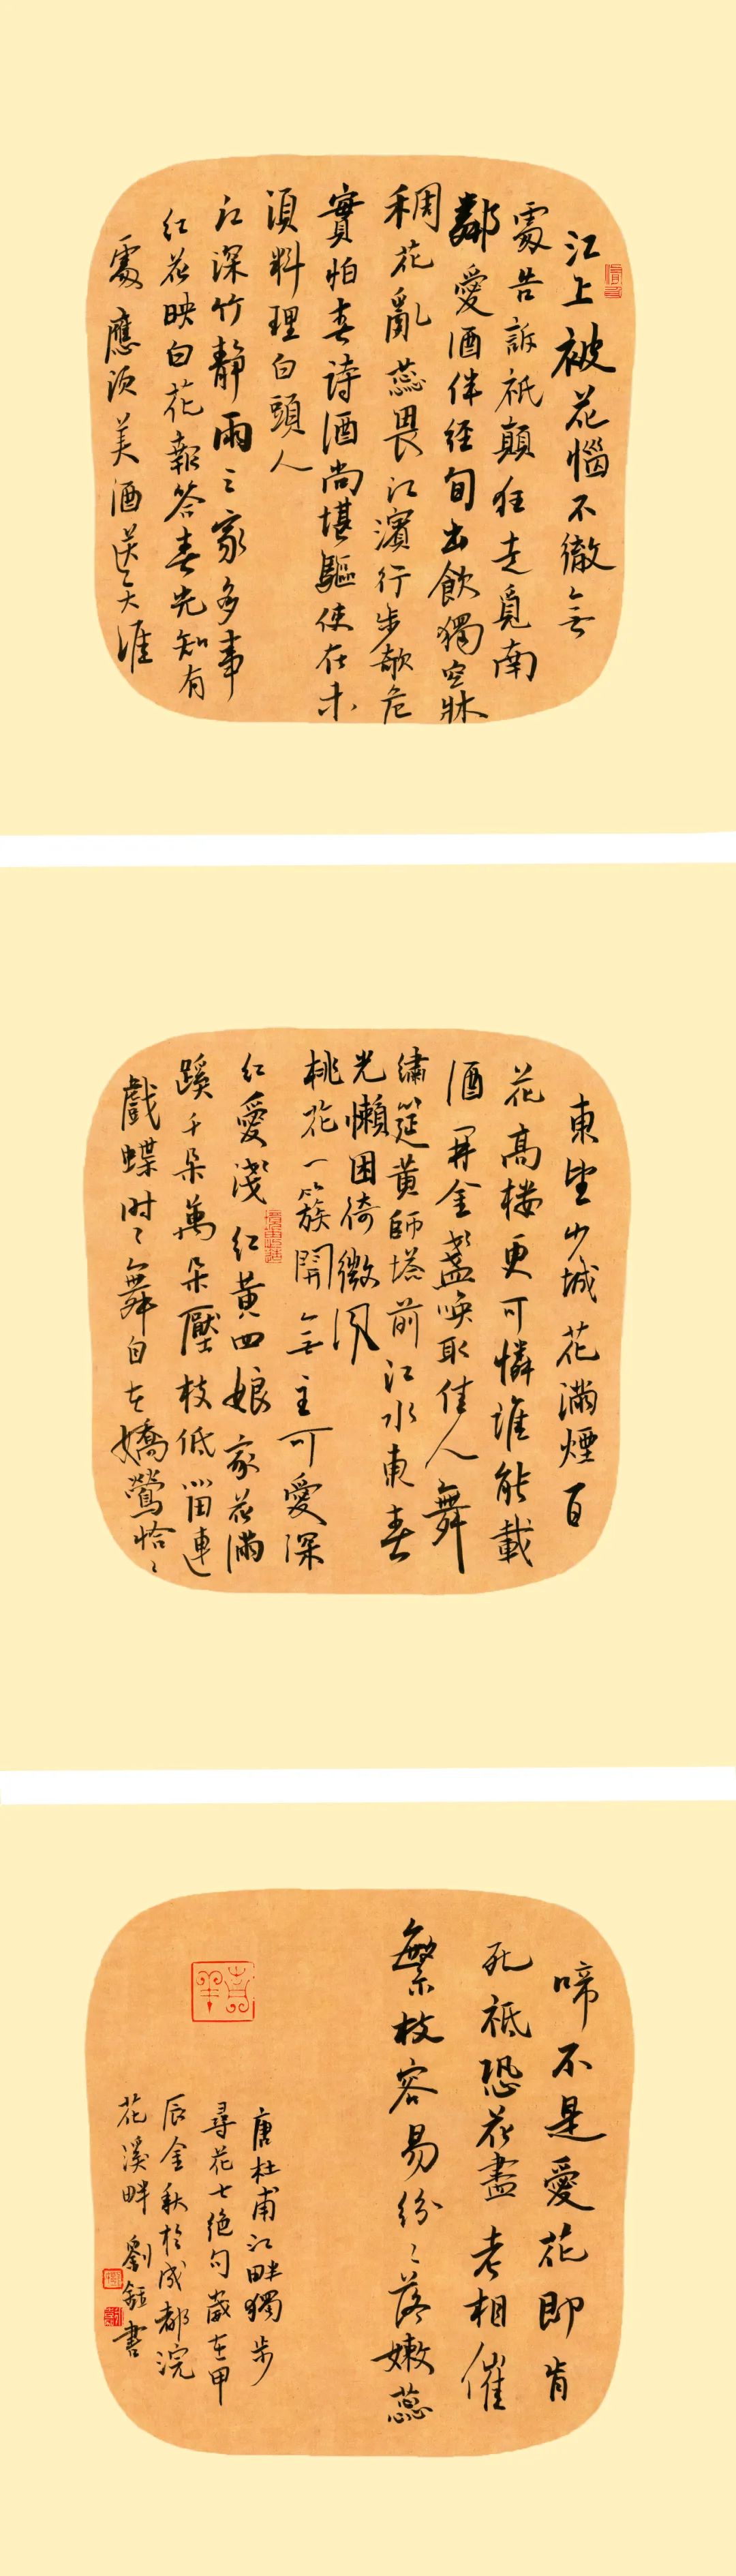 江上被花惱不徹無
處告訴祇顛狂走覓南
鄰愛酒伴經旬出飲獨空牀
稠花亂蕊畏江濱行步欹危
實怕春詩酒尚堪驅使在未
須料理白頭人
江深竹靜兩三家多事
紅花映白花報答春光知有
處應須美酒送生涯
東望少城花滿煙百
花高樓更可憐誰能載
酒開金盞喚取佳人舞
繡筵黃師塔前江水東春
光懶困倚微風
桃花一簇開無主可愛深
紅愛淺紅黃四娘家花滿
蹊千朵萬朵壓枝低留連
戲蝶時〻舞自在嬌鶯恰〻
啼不是愛花即肯
死祇恐花盡老相催
繁枝容易紛〻落嫩蕊
唐杜甫江畔獨步
尋花七絕句歲在甲
辰金秋於成都浣
花溪畔劉鈺書